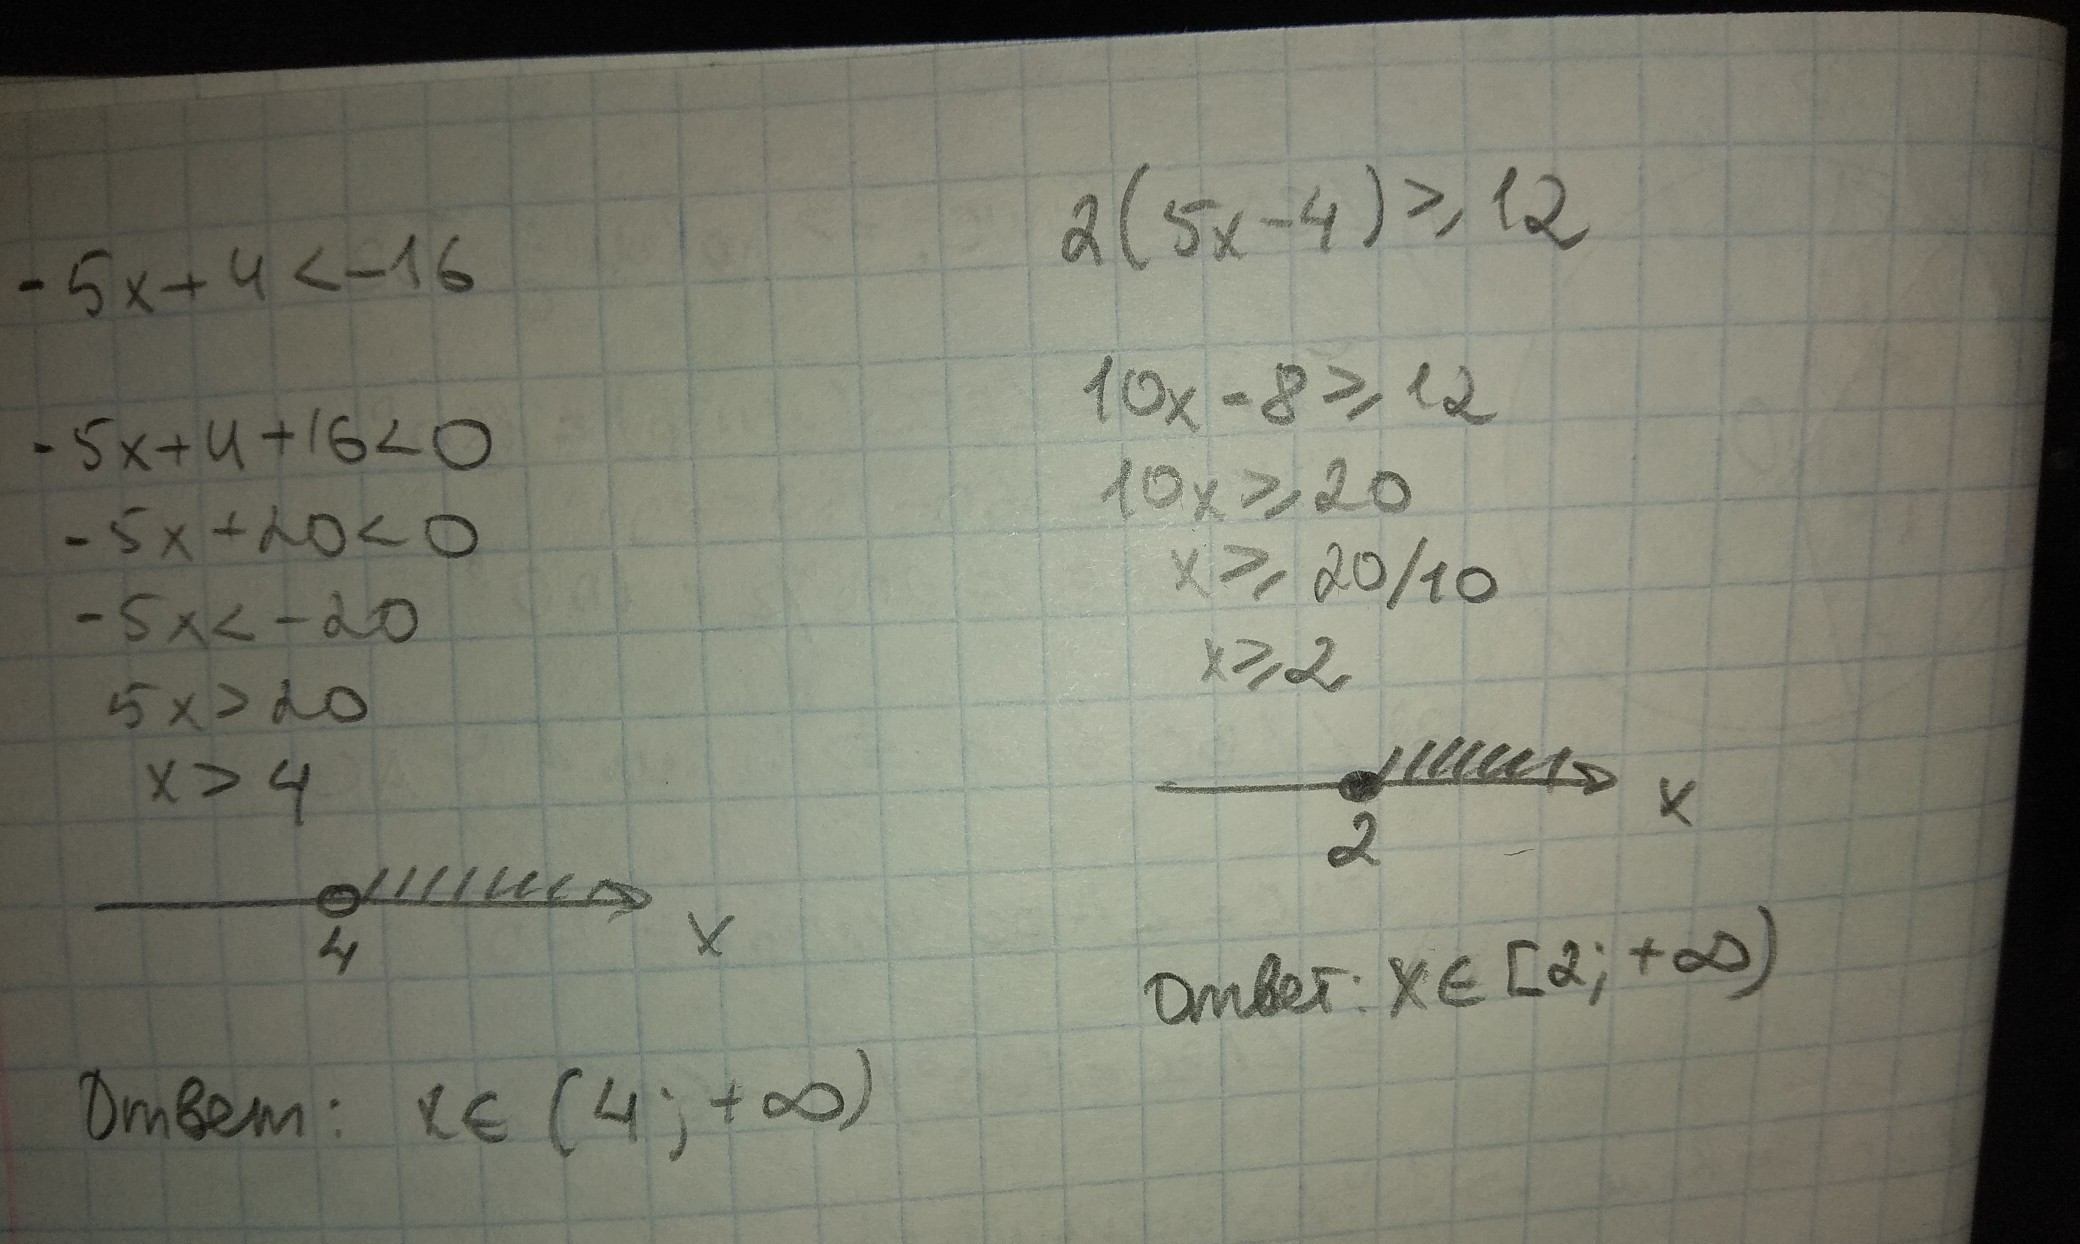 -5x+4<-16
-5x+4+16<0
-5x+20<0
-5x<-20
5x>20
x>4
4
x
Ответ: x∈(4;+∞)
2(5x-4)⩾12
10x-8⩾12
10x⩾20
x⩾20/10
x⩾2
2
x
Ответ: x∈[2;+∞)